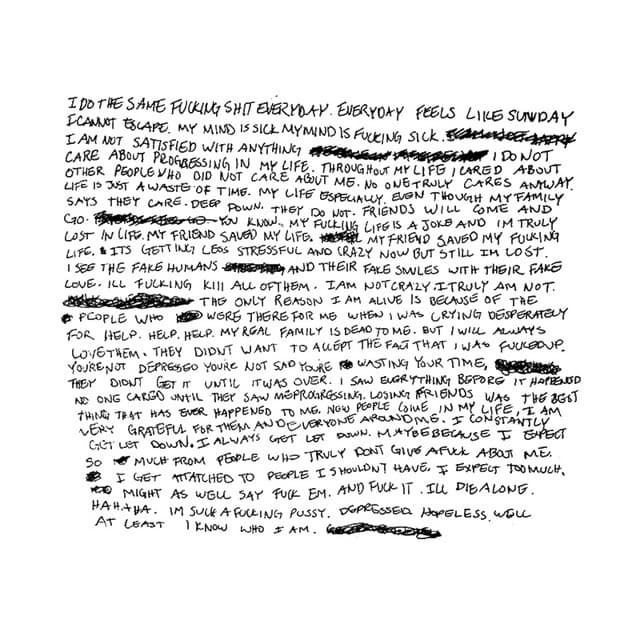 I DO THE SAME FUCKING SHIT EVERYDAY. EVERYDAY FEELS LIKE SUNDAY
I CANNOT ESCAPE. MY MIND IS SICK MY MIND IS FUCKING SICK.
I AM NOT SATISFIED WITH ANYTHING I DO NOT
CARE ABOUT PROGRESSING IN MY LIFE. THROUGHOUT MY LIFE I CARED ABOUT
OTHER PEOPLE WHO DID NOT CARE ABOUT ME. NO ONE TRULY CARES ANYWAY.
LIFE IS JUST A WASTE OF TIME. MY LIFE ESPECIALLY. EVEN THOUGH MY FAMILY
SAYS THEY CARE. DEEP DOWN. THEY DO NOT. FRIENDS WILL COME AND
GO. YOU KNOW. MY FUCKING LIFE IS A JOKE AND IM TRULY
LOST IN LIFE. MY FRIEND SAVED MY LIFE. MY FRIEND SAVED MY FUCKING
LIFE. ITS GETTING LESS STRESSFUL AND CRAZY NOW BUT STILL IM LOST.
I SEE THE FAKE HUMANS AND THEIR FAKE SMILES WITH THEIR FAKE
LOVE. ILL FUCKING KILL ALL OF THEM. I AM NOT CRAZY. I TRULY AM NOT.
THE ONLY REASON I AM ALIVE IS BECAUSE OF THE
PEOPLE WHO WERE THERE FOR ME WHEN I WAS CRYING DESPERATELY
FOR HELP. HELP. HELP. MY REAL FAMILY IS DEAD TO ME. BUT I WILL ALWAYS
LOVE THEM. THEY DIDNT WANT TO ACCEPT THE FACT THAT I WAS FUCKED UP.
YOURE NOT DEPRESSED YOURE NOT SAD YOURE WASTING YOUR TIME,
THEY DIDNT GET IT UNTIL IT WAS OVER. I SAW EVERYTHING BEFORE IT HAPPENED
NO ONE CARED UNTIL THEY SAW ME PROGRESSING. LOSING FRIENDS WAS THE BEST
THING THAT HAS EVER HAPPENED TO ME. NEW PEOPLE COME IN MY LIFE, I AM
VERY GRATEFUL FOR THEM AND EVERYONE AROUND ME. I CONSTANTLY
GET LET DOWN. I ALWAYS GET LET DOWN. MAYBE BECAUSE I EXPECT
SO MUCH FROM PEOPLE WHO TRULY DONT GIVE A FUCK ABOUT ME.
I GET ATTATCHED TO PEOPLE I SHOULDN'T HAVE. I EXPECT TOO MUCH.
MIGHT AS WELL SAY FUCK EM. AND FUCK IT. ILL DIE ALONE.
HAHAHA. IM SUCH A FUCKING PUSSY. DEPRESSED HOPELESS. WELL
AT LEAST I KNOW WHO I AM.